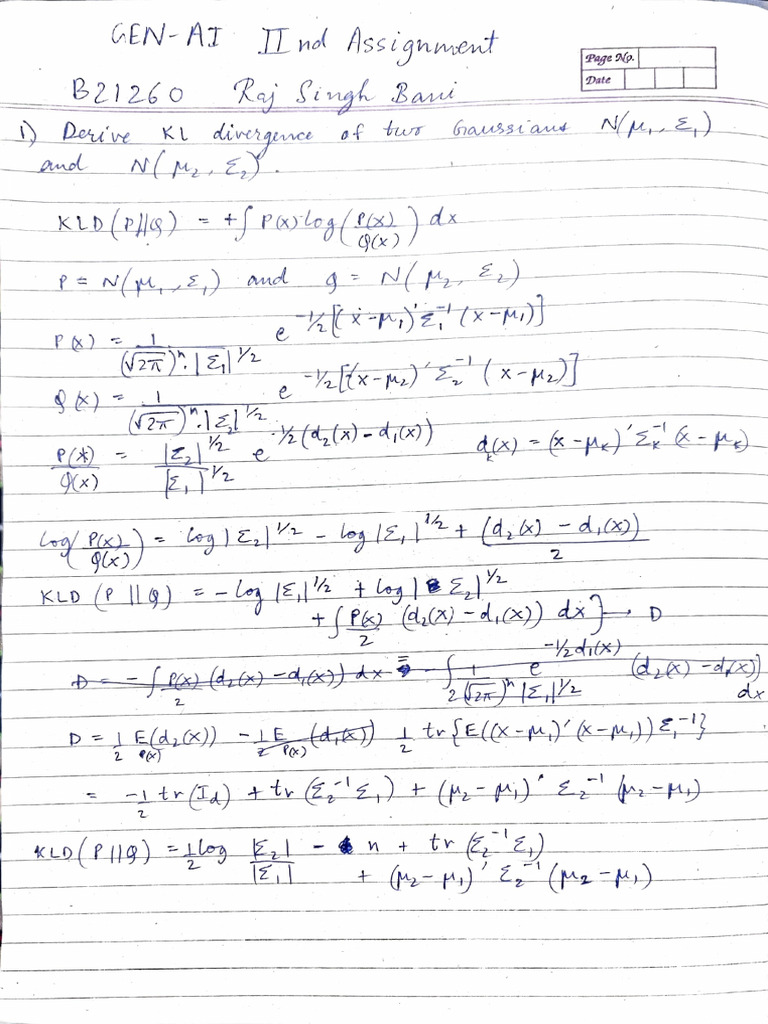 GEN-AI IInd Assignment
Page No.
Date
B21260 Raj Singh Bani
1) Derive KL divergence of two Gaussians N(μ₁, Σ₁)
and N(μ₂, Σ₂).
KLD(P||Q) = +∫ P(x) log(P(x)/Q(x)) dx
P = N(μ₁, Σ₁) and Q = N(μ₂, Σ₂)
P(x) = 1/((√2π)ⁿ · |Σ₁|^1/2) e^{-1/2[(x-μ₁)' Σ₁⁻¹ (x-μ₁)]}
Q(x) = 1/((√2π)ⁿ · |Σ₂|^1/2) e^{-1/2[(x-μ₂)' Σ₂⁻¹ (x-μ₂)]}
P(x)/Q(x) = |Σ₂|^1/2 / |Σ₁|^1/2 e^{-1/2(d₂(x) - d₁(x))} dₖ(x) = (x-μₖ)' Σₖ⁻¹ (x-μₖ)
log(P(x)/Q(x)) = log|Σ₂|^1/2 - log|Σ₁|^1/2 + (d₂(x) - d₁(x))/2
KLD (P||Q) = -log|Σ₁|^1/2 + log|Σ₂|^1/2
+ ∫ P(x)/2 (d₂(x) - d₁(x)) dx} → D
D = -∫ P(x)/2 (d₂(x) - d₁(x)) dx = -∫ 1/(2(√2π)ⁿ |Σ₁|^1/2) e^{-1/2 d₁(x)} (d₂(x) - d₁(x)) dx
D = 1/2 E_{P(x)}(d₂(x)) - 1/2 E_{P(x)} (d₁(x)) 1/2 tr{E((x-μ₁)'(x-μ₁)) Σ₁⁻¹}
= -1/2 tr(I_d) + tr(Σ₂⁻¹Σ₁) + (μ₂-μ₁)' Σ₂⁻¹ (μ₂-μ₁)
KLD(P||Q) = 1/2 log |Σ₂|/|Σ₁| - n + tr(Σ₂⁻¹Σ₁)
+ (μ₂-μ₁)' Σ₂⁻¹ (μ₂-μ₁)